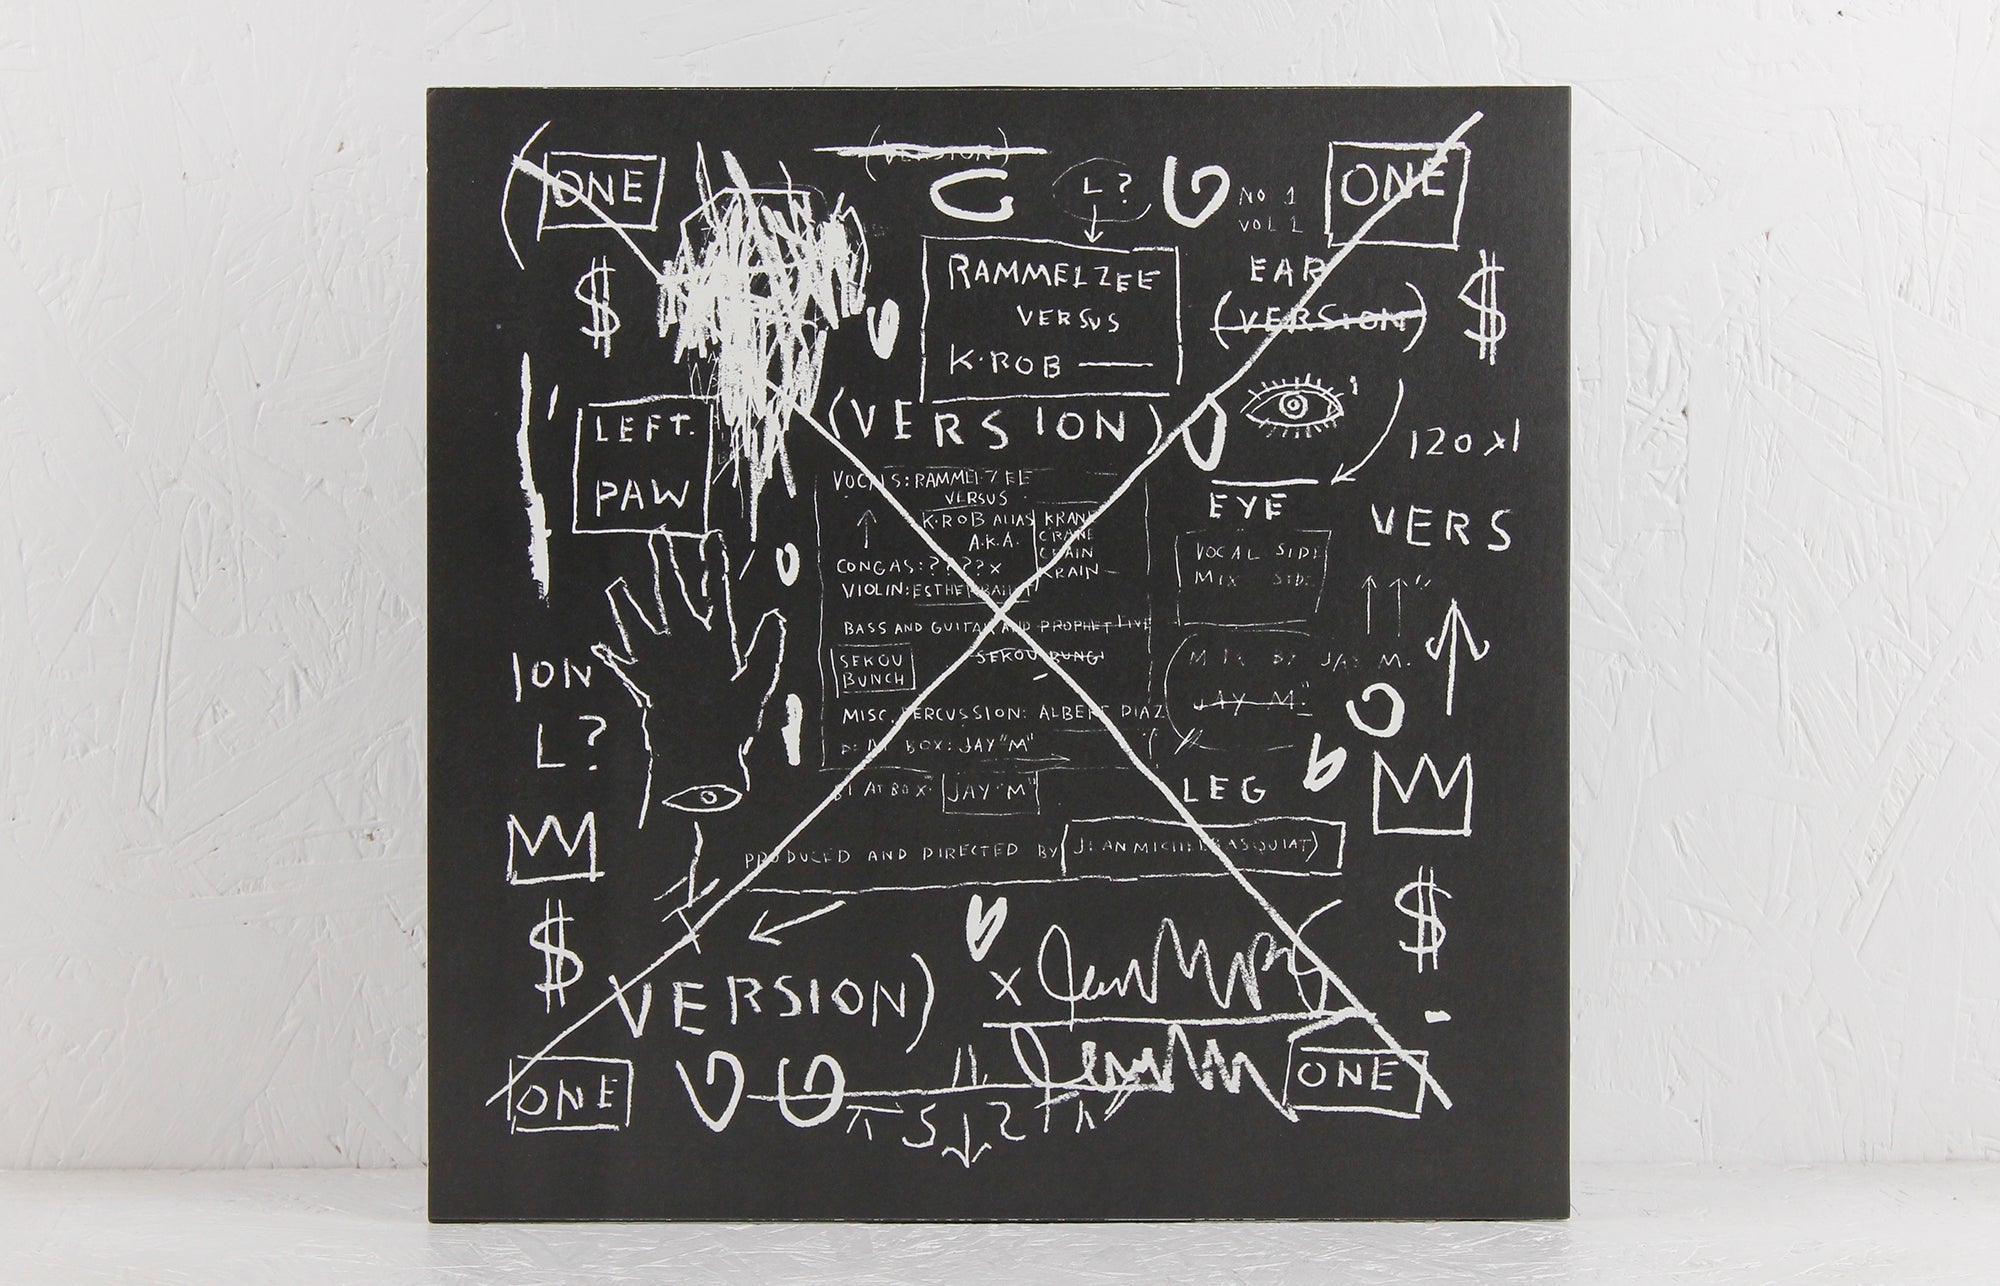 (VERSION)
ONE
L?
NO 1
VOL 1
ONE
$
RAMMELZEE
VERSUS
K·ROB
EAR
(VERSION)
$
LEFT.
PAW
(VERSION)
120 x1
EYE
VERS
VOCALS: RAMMELZEE
VERSUS
K·ROB ALIAS
A.K.A.
KRANE
CRANE
CRAIN
KRAIN
CONGAS: ????x
VIOLIN: ESTHER BALINT
BASS AND GUITAR AND PROPHET FIVE
SEKOU BUNGI
SEKOU
BUNCH
MISC. PERCUSSION: ALBERT DIAZ
BEAT BOX: JAY "M"
BEAT BOX: JAY "M"
VOCAL SIDE
MIX SIDE
MIX BY JAY M.
JAY M.
ION
L?
LEG
PRODUCED AND DIRECTED BY JEAN MICHEL BASQUIAT)
$
$
VERSION)
X
ONE
ONE